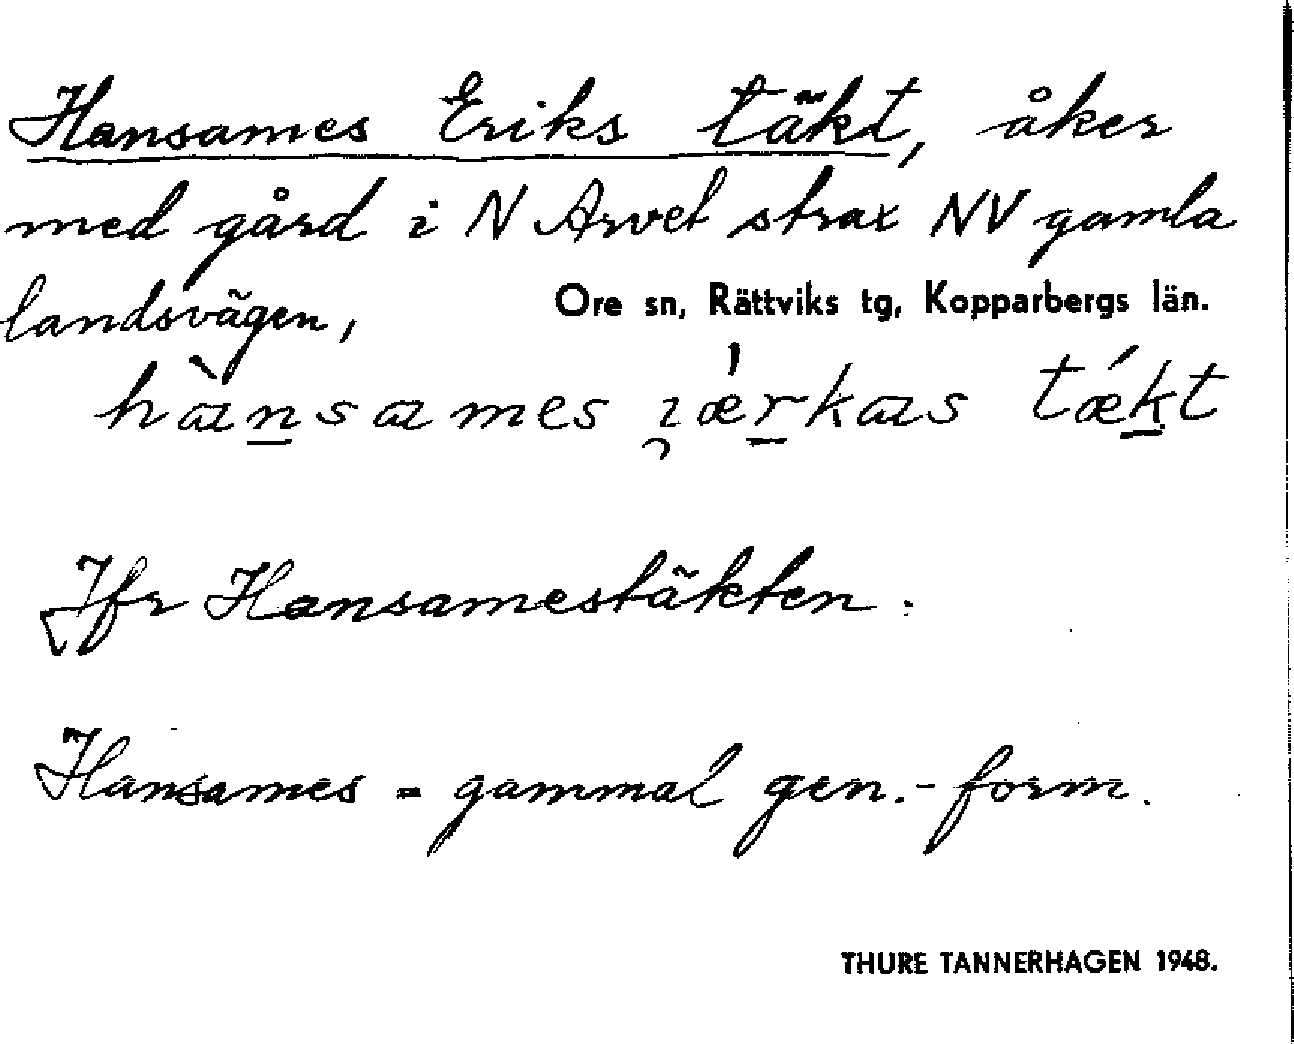 Hansames Eriks täkt, åker
med gård i N Arvet strax NV gamla
landsvägen,
Ore sn, Rättviks tg, Kopparbergs län.
hànsames ı̯ǽrkas tǽkt
Jfr Hansamestäkten.
Hansames = gammal gen.-form.
THURE TANNERHAGEN 1948.